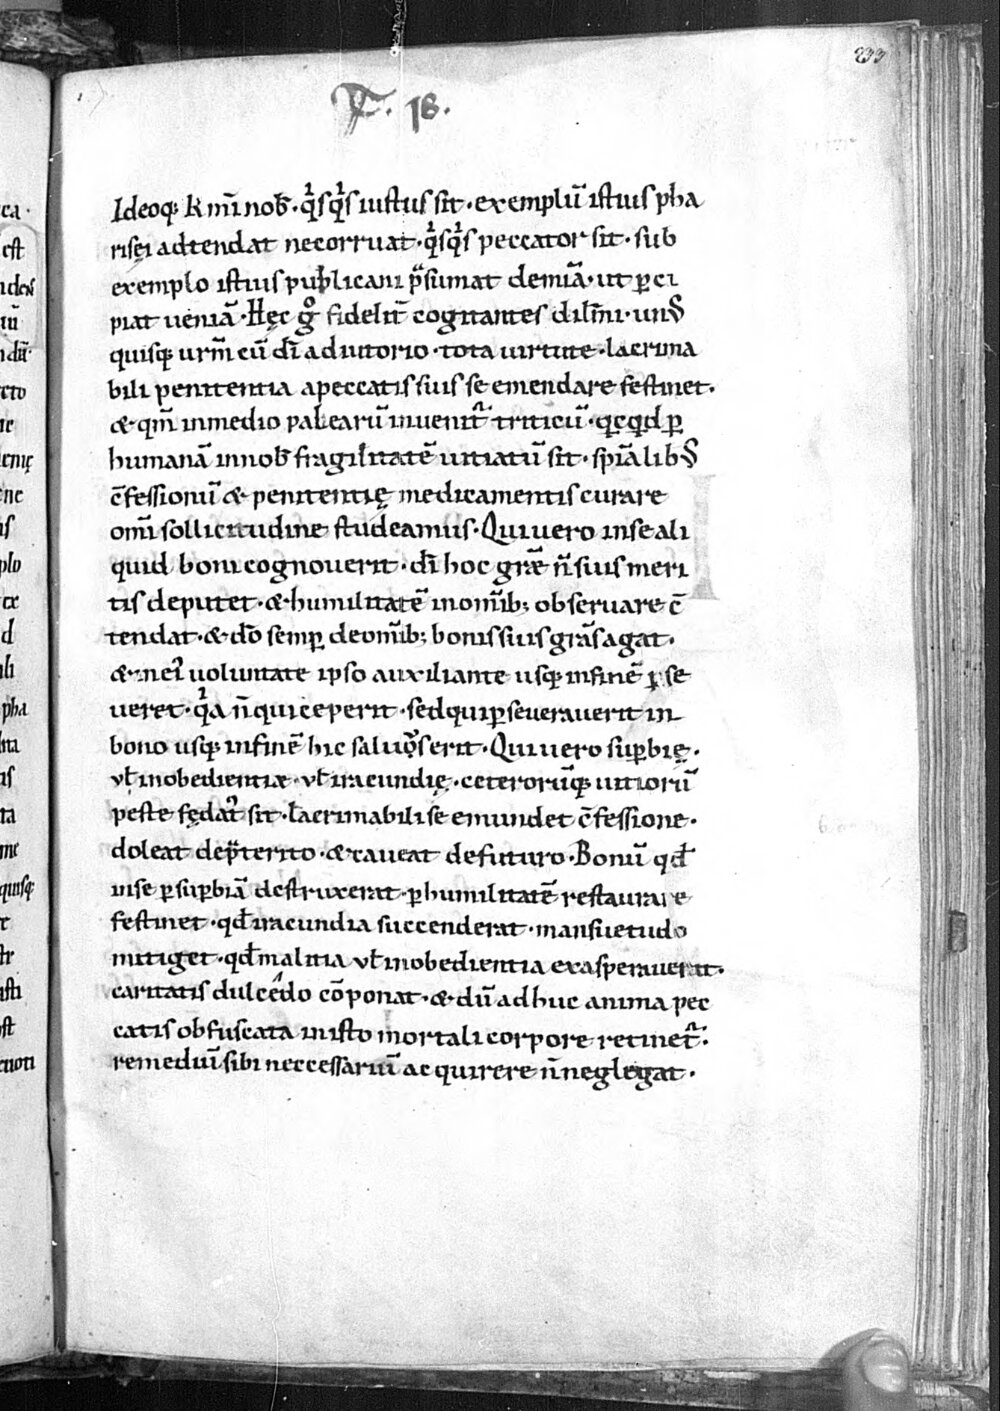 233
F. 18.
Ideoq; k̅mi nob̅. qͥsqͥs iustus sit. exemplu̅ istius pha
ca.
risęi adtendat ne corruat. qͥsqͥs peccator sit. sub
est
exemplo istius publicani p̃sumat de mia̅. ut ꝑci
piat uenia̅. Hęc g̊ fidelit̅ cogitantes dil̅mi. unꝰ
quisq; ur̅m cu̅ di̅ adiutorio. tota uirtute. lacrima
bili penitentia a peccatis suis se emendare festinet.
cto
& qm̅ in medio palearu̅ inuenit̃ triticu̅. qcqd ꝑ
humana̅ in nob̅ fragilitate̅ uitiatu̅ sit. sp̅ialibꝰ
c̅fessionu̅ & penitentię medicamentis curare
ne
omi̅ sollicitudine studeamus. Qui uero in se ali
quid boni cognouerit. di̅ hoc gr̅ę n̅ suis meri
plo
tis deputet. & humilitate̅ in omib̅; obseruare c̅
tendat. & do̅ semꝑ de omib̅; bonis suis gra̅s agat.
d
& mei̅ uoluntate ipso auxiliante usq; in fine̅ ꝑse
li
ueret. qͥa n̅ qui ceperit. sed qui ꝑseuerauerit in
pha
bono usq; in fine̅ hic saluꝰ erit. Qui uero suꝑbię.
uł inobedientiæ. uł iracundię. ceterorũq; uitioru̅
peste fędat᷒ sit. lacrimabili se emundet c̅fessione.
ta
doleat de p̃terito. & caueat de futuro. Bonu̅ qđ
me
in se ꝑ suꝑbia̅ destruxerat. ꝑ humilitate̅ restaurare
quisq;
festinet. qđ iracundia succenderat. mansuetudo
mitiget. qđ malitia uł inobedientia exasperauerat.
caritatis dulcedo co̅ponat. & du̅ adhuc anima pec
catis obfuscata in isto mortali corpore retinet᷒.
remediu̅ sibi neccessariu̅ acquirere n̅ neglegat.